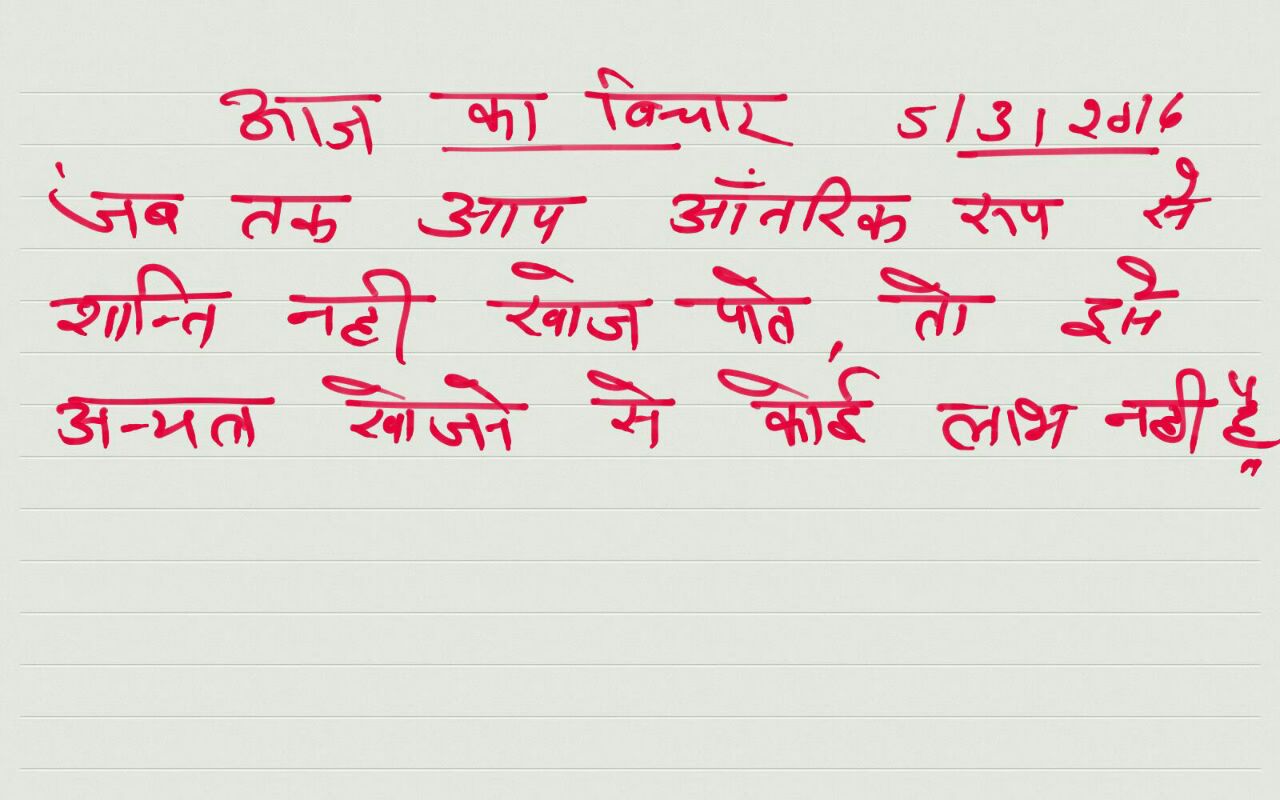 आज का विचार 5/3/2016
जब तक आप आंतरिक रूप से
शान्ति नही खोज पाते तो इसे
अन्यत्र खोजने से कोई लाभ नहीं है